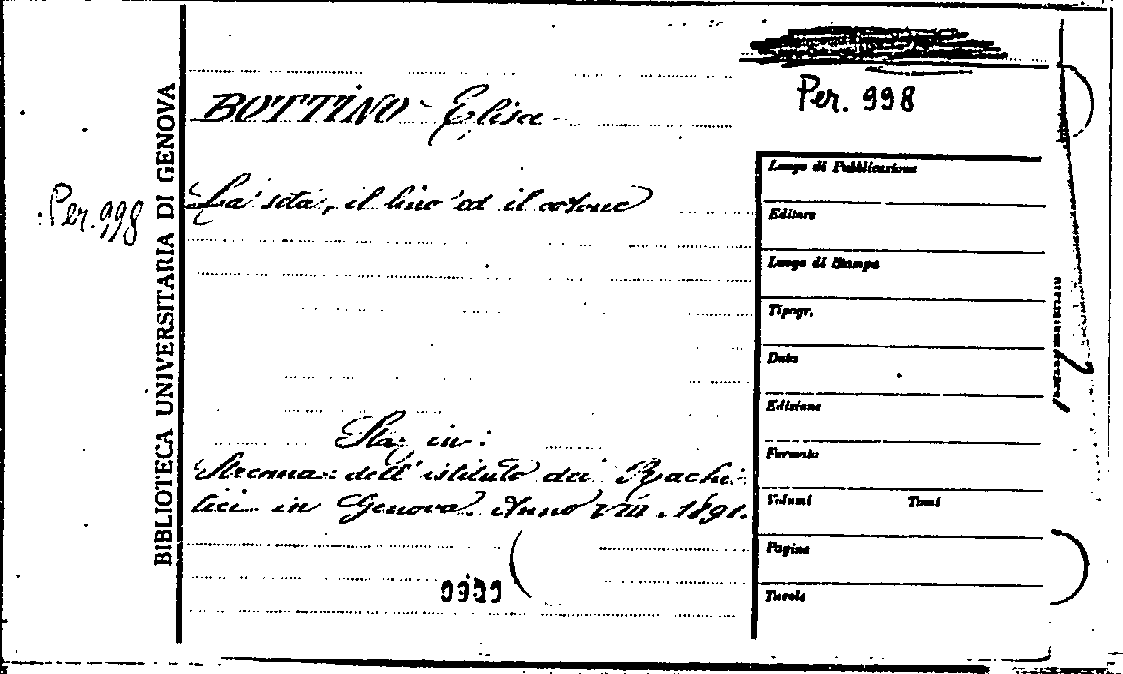 Per. 998
BOTTINO Elisa
La seta, il lino ed il cotone
Per. 998
BIBLIOTECA UNIVERSITARIA DI GENOVA
Sta in:
Strenna dell'istituto dei Rachi-
tici in Genova. Anno VIII. 1891.
Luogo di Pubblicazione
Editore
Luogo di Stampa
Tipogr.
Data
Edizione
Formato
Volumi Tomi
Pagine
Tavole